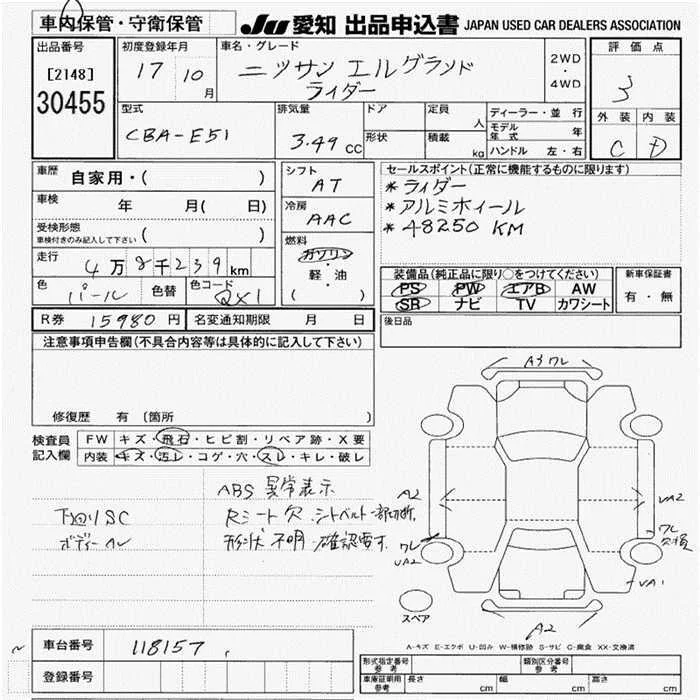 車内保管・守衛保管
JU 愛知 出品申込書 JAPAN USED CAR DEALERS ASSOCIATION
出品番号
[2148]
30455
初度登録年月
17 10 月
車名・グレード
ニッサン エルグランド
ライダー
2WD
・
4WD
評価点
3
外装 内装
C D
型式
CBA-E51
排気量
3.49 CC
ドア
形状
定員 人
積載 kg
ディーラー・並行
モデル年式 年
ハンドル 左・右
車歴
自家用・( )
車検 年 月( 日)
受検形態
車検付きのみ記入して下さい ( )
走行 4万8千239km
色 パール 色替 色コード QX1
シフト
AT
冷房
AAC
燃料
ガソリン
・
軽・油
( )
セールスポイント(正常に機能するものに限ります)
*ライダー
*アルミホイール
*48250 KM
装備品(純正品に限り○をつけてください)
PS PW エアB AW
SR ナビ TV カワシート
新車保証書
有・無
R券 15980円 名変通知期限 月 日
後日品
注意事項申告欄(不具合内容等は具体的に記入して下さい)
修復歴 有(箇所 )
検査員
記入欄
FW キズ・飛石・ヒビ割・リペア跡・X要
内装 キズ・汚レ・コゲ・穴・スレ・キレ・破レ
ABS 異常表示
下回りSC Rシート欠 シートベルト一部切断
ボディー 形状不明 確認要す.
A3 ワレ
A2
UA2
ワレ
欠損
ワレ
UA2
UA1
スペア
A2
A-キズ E-エクボ U-凹み W-補修跡 S-サビ C-腐食 XX-交換済
車台番号 118157
登録番号
形式指定番号
参考
類別区分番号
参考
車庫証明用
参考
長さ cm 幅 cm 高さ cm